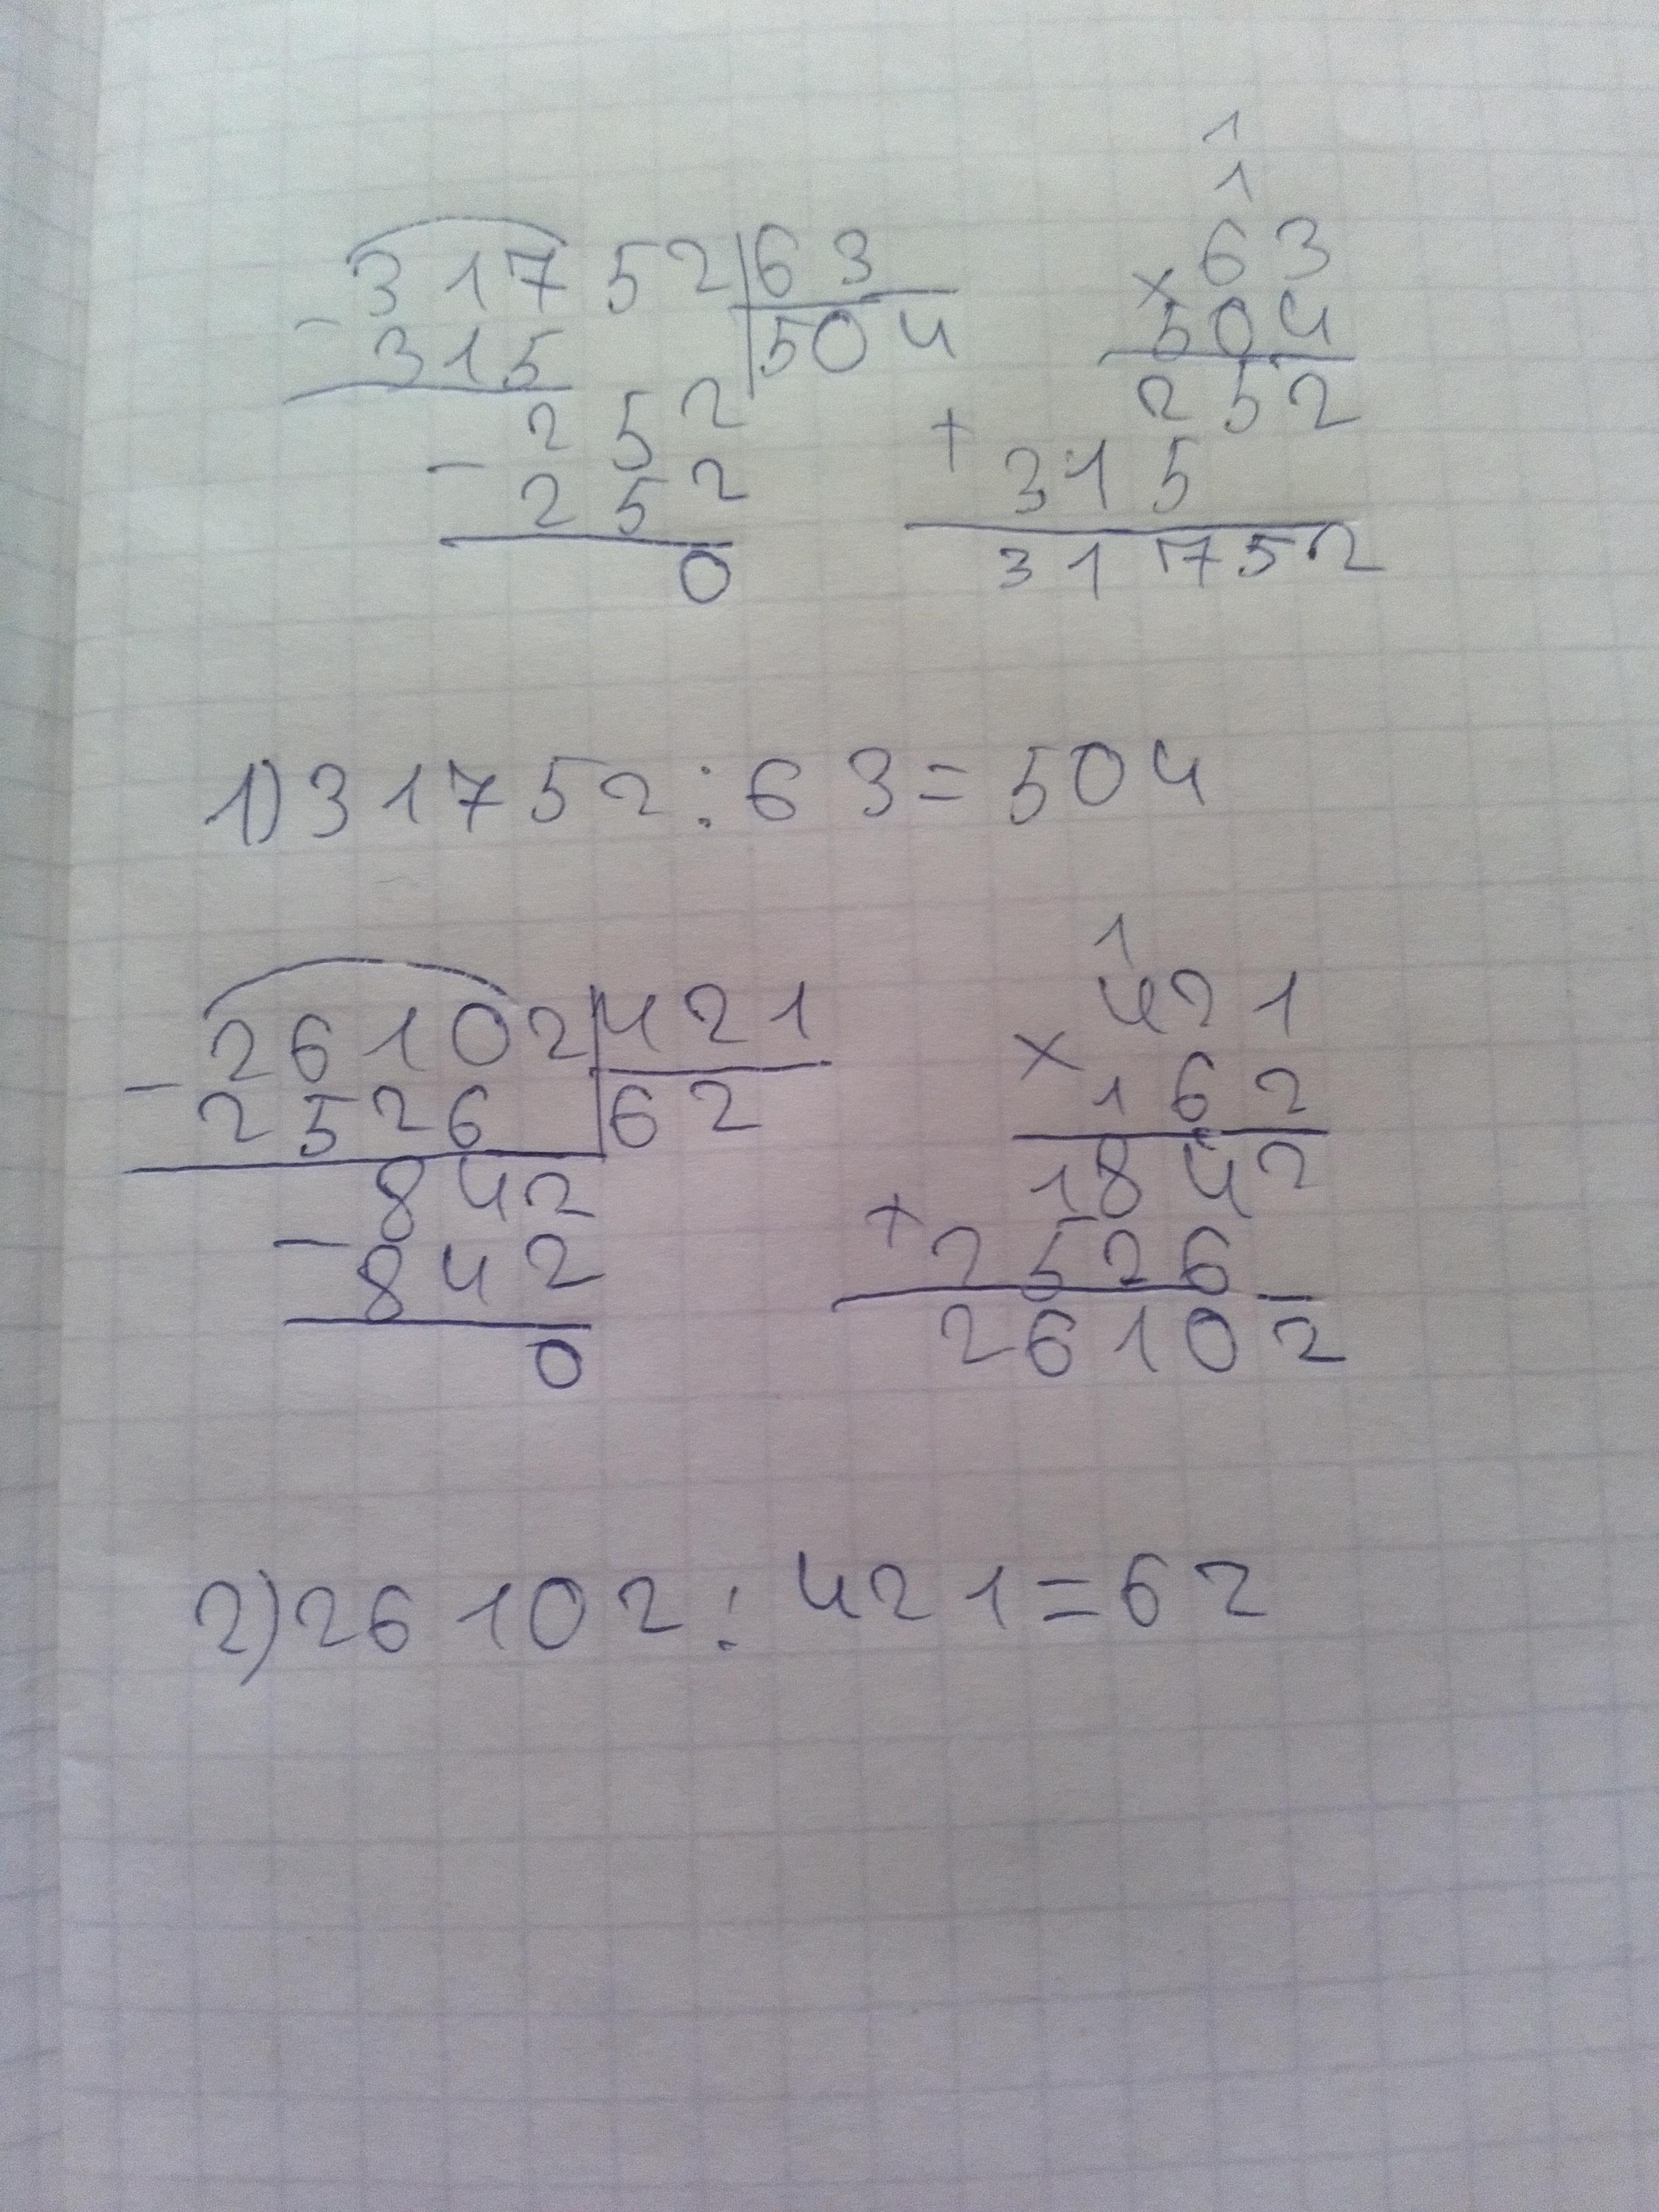 31752|63
- 315 |504
252
- 252
0
1
1
63
× 504
252
+ 315
31752
1) 31752 : 63 = 504
26102|421
- 2526 |62
842
- 842
0
1
421
× 162
1842
+ 2526
26102
2) 26102 : 421 = 62